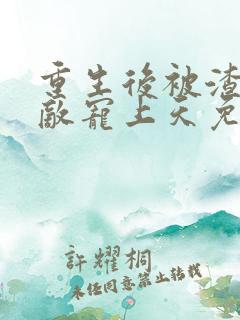 重生後被渣
敵寵上天免
許耀桐
未经同意禁止转载